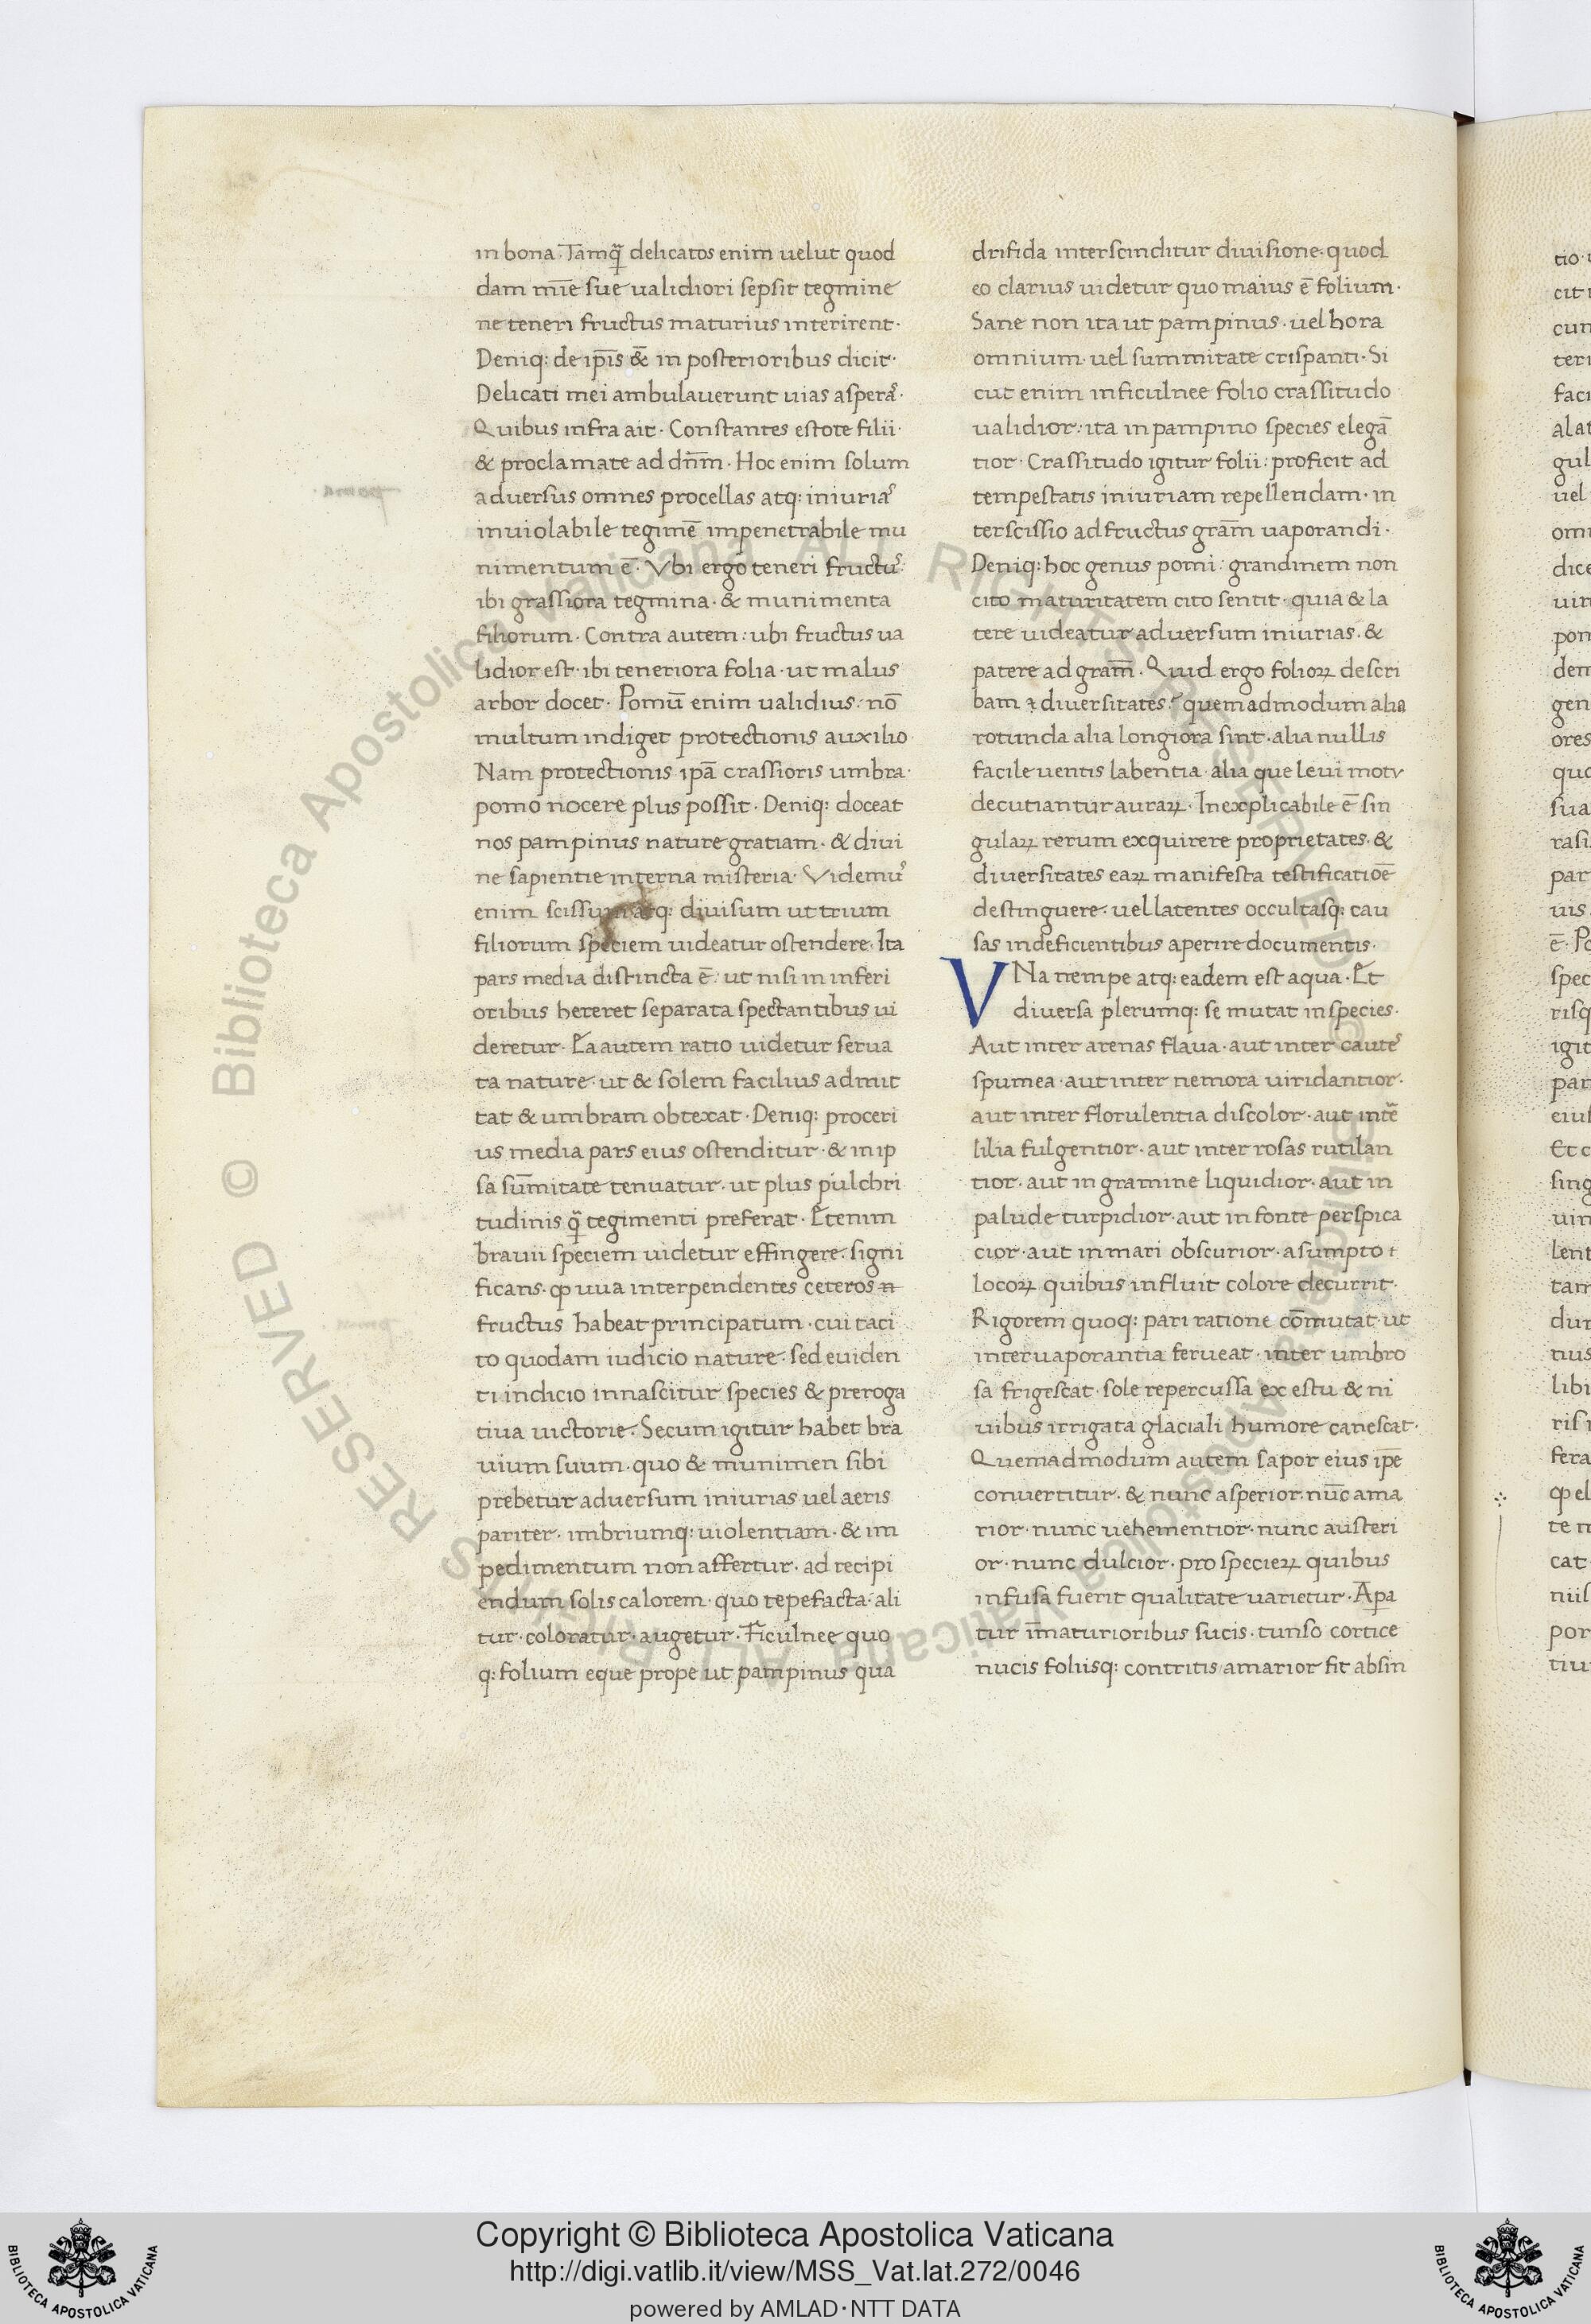 in bona. Tamq̃ delicatos enim uelut quod
dam mr̄e sue ualidiori sepsit tegmine
ne teneri fructus maturius interirent.
Deniq: de ip̄is & in posterioribus dicit.
Delicati mei ambulauerunt uias asperas.
Quibus infra ait. Constantes estote filii.
& proclamate ad dn̄m. Hoc enim solum
aduersus omnes procellas atq: iniurias
inuiolabile tegimē impenetrabile mu
nimentum ē. Vbi ergo teneri fructus:
ibi grassiora tegmina. & munimenta
filiorum. Contra autem: ubi fructus ua
lidior est. ibi teneriora folia. ut malus
arbor docet. Pomū enim ualidius: nō
multum indiget protectionis auxilio.
Nam protectionis ipā crassioris umbra.
pomo nocere plus possit. Deniq: doceat
nos pampinus nature gratiam. & diui
ne sapientie interna misteria. Videmus
enim scissum atq: diuisum ut trium
filiorum speciem uideatur ostendere. Ita
pars media distincta ē: ut nisi in inferi
oribus hereret separata spectantibus ui
deretur. Ea autem ratio uidetur serua
ta nature. ut & solem facilius admit
tat & umbram obtexat. Deniq: proceri
us media pars eius ostenditur. & in ip
sa sūmitate tenuatur. ut plus pulchri
tudinis q̃ tegimenti preferat. Etenim
brauii speciem uidetur effingere. signi
ficans. ꝙ uua interpendentes ceteros n
fructus habeat principatum. cui taci
to quodam iudicio nature. sed euiden
ti indicio innascitur species & preroga
tiua uictorie. Secum igitur habet bra
uium suum. quo & munimen sibi
prebetur aduersum iniurias uel aeris
pariter. imbriumq: uiolentiam. & im
pedimentum non affertur. ad recipi
endum solis calorem. quo tepefacta. ali
tur. coloratur. augetur. Ficulnee quo
q: folium eque prope ut pampinus qua
drifida interscinditur diuisione. quod
eo clarius uidetur quo maius ē folium.
Sane non ita ut pampinus. uel hora
omnium. uel summitate crispanti. Si
cut enim in ficulnee folio crassitudo
ualidior: ita in pampino species elegā
tior. Crassitudo igitur folii: proficit ad
tempestatis iniuriam repellendam. in
terscissio ad fructus grām uaporandi.
Deniq: hoc genus pomi: grandinem non
cito maturitatem cito sentit. quia & la
tere uideatur aduersum iniurias. &
patere ad grām̄. Quid ergo folioꝝ descri
bam ⁊ diuersitates? quemadmodum alia
rotunda alia longiora sint. alia nullis
facile uentis labentia. alia que leui motu
decutiantur auraꝝ. Inexplicabile ē sin
gulaꝝ rerum exquirere proprietates. &
diuersitates eaꝝ manifesta testificatiōe
destinguere. uel latentes occultasq: cau
sas indeficientibus aperire documentis.
VNa nempe atq: eadem est aqua. Et
diuersa plerumq: se mutat in species.
Aut inter arenas flaua. aut inter cautes
spumea. aut inter nemora uiridantior.
aut inter florulentia discolor. aut inter̃
lilia fulgentior. aut inter rosas rutilan
tior. aut in gramine liquidior. aut in
palude turpidior. aut in fonte perspica
cior. aut in mari obscurior. asumpto
locoꝝ quibus influit colore decurrit.
Rigorem quoq: pari ratione cōmutat ut
inter uaporantia ferueat. inter umbro
sa frigescat. sole repercussa ex estu & ni
uibus irrigata glaciali humore canescat.
Quemadmodum autem sapor eius ip̄e
conuertitur. & nunc asperior. nūc ama
rior. nunc uehementior. nunc austeri
or. nunc dulcior. pro specieꝝ quibus
infusa fuerit qualitate uarietur. Aspa
tur im̄aturioribus sucis. tunso cortice
nucis foliisq: contritis amarior fit absin
Copyright © Biblioteca Apostolica Vaticana
http://digi.vatlib.it/view/MSS_Vat.lat.272/0046
powered by AMLAD·NTT DATA